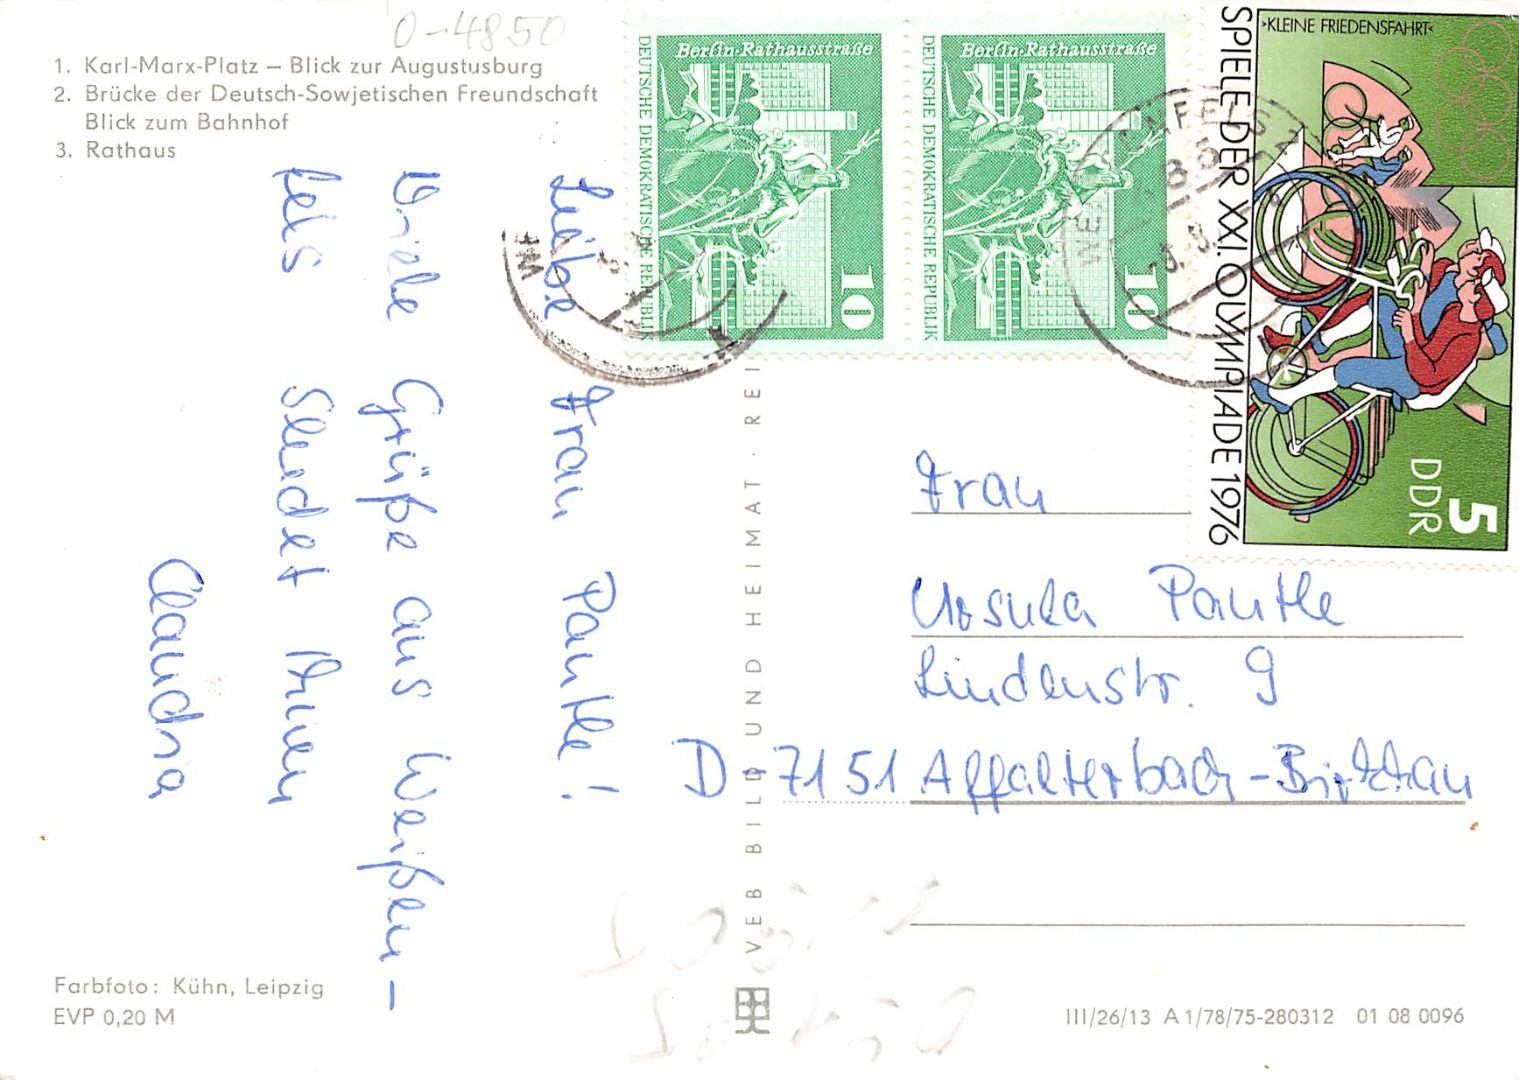 O-4850
1. Karl-Marx-Platz – Blick zur Augustusburg
2. Brücke der Deutsch-Sowjetischen Freundschaft
Blick zum Bahnhof
3. Rathaus
Liebe Frau Pantle!
Viele Grüße aus Weißen-
fels sendet Ihnen
Claudia
Farbfoto: Kühn, Leipzig
EVP 0,20 M
VEB BILD UND HEIMAT · REI
Berlin·Rathausstraße
DEUTSCHE DEMOKRATISCHE REPUBLIK
10
Berlin·Rathausstraße
DEUTSCHE DEMOKRATISCHE REPUBLIK
10
›KLEINE FRIEDENSFAHRT‹
SPIELE DER XXI. OLYMPIADE 1976
DDR
5
Frau
Ursula Pantle
Lindenstr. 9
D-7151 Affalterbach-Birkhau
III/26/13 A 1/78/75-280312 01 08 0096